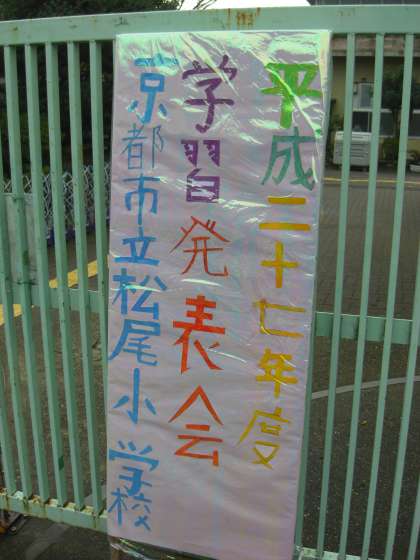 平成二十七年度
学習発表会
京都市立松尾小学校